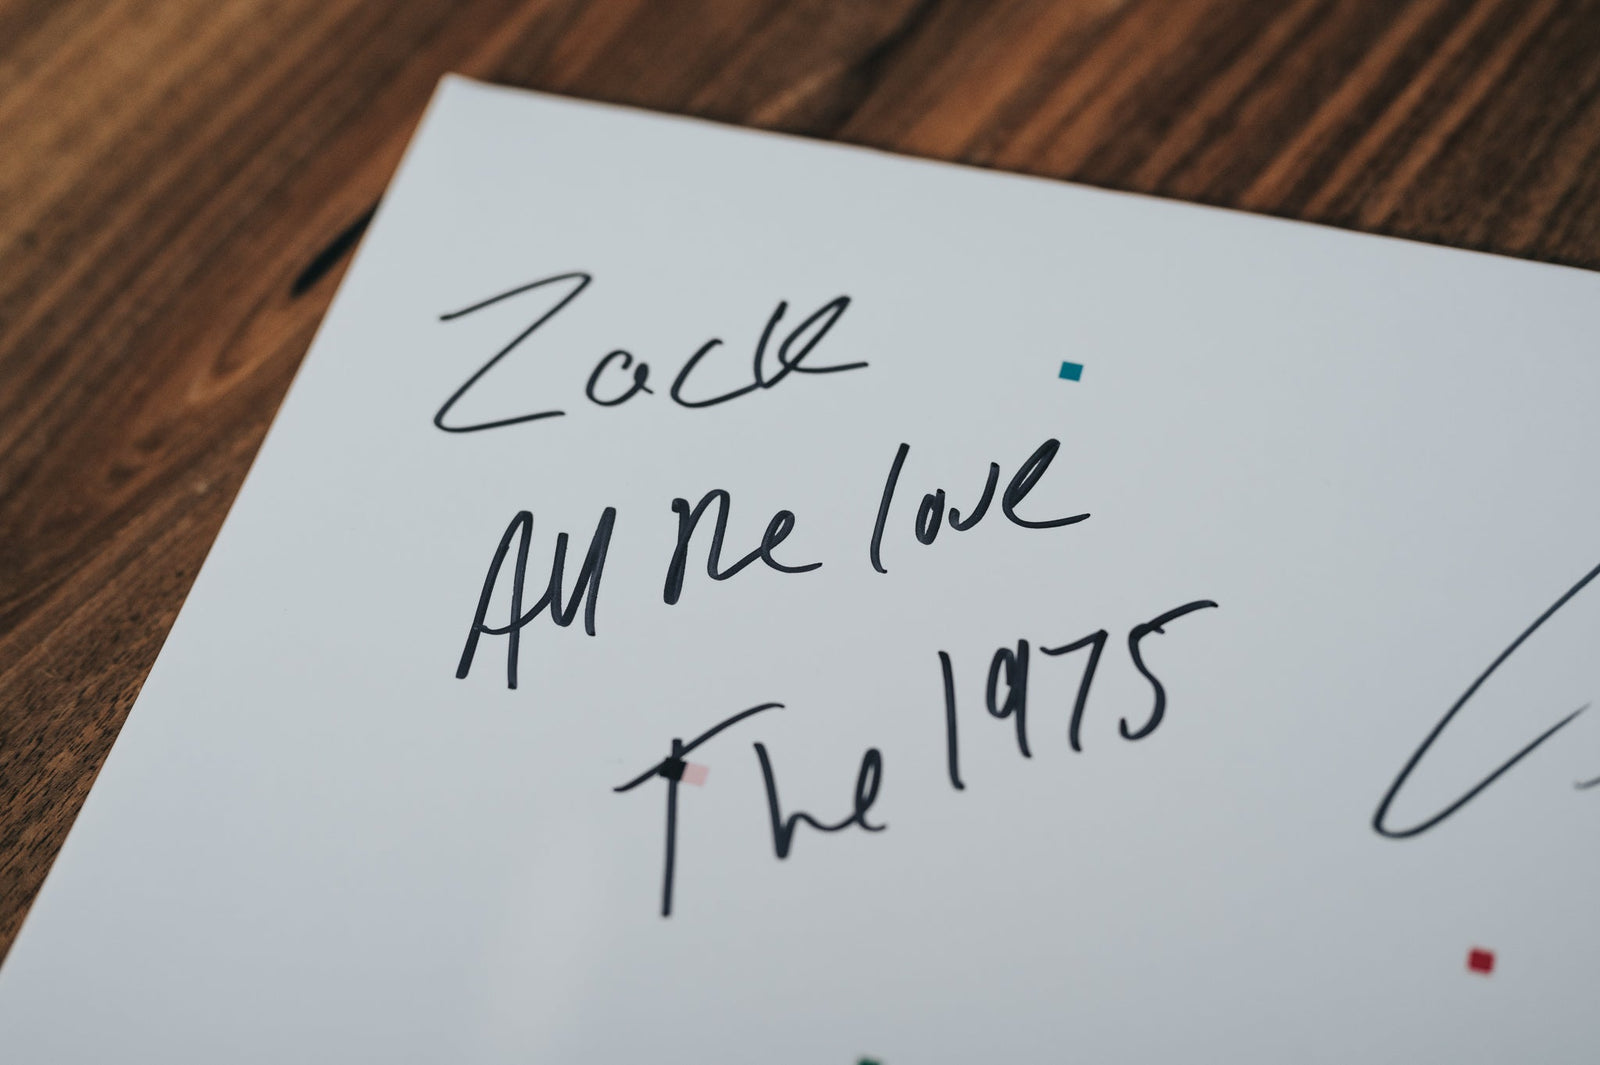 Zack
All the love
The 1975